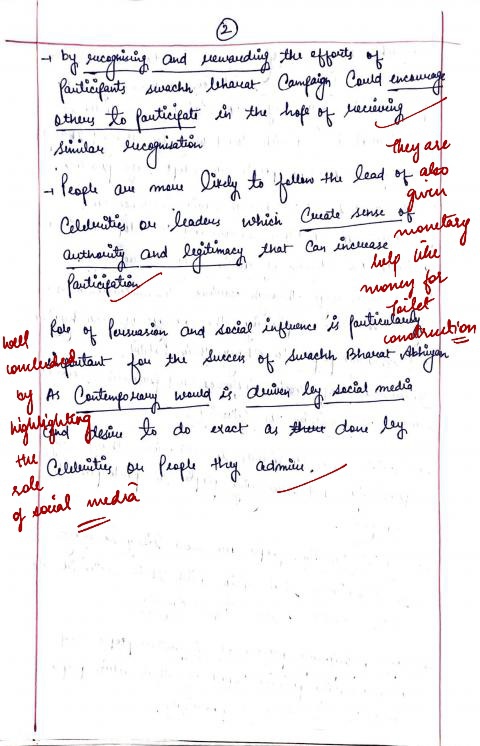 2
→ by recognising and rewarding the efforts of
Participants swachh bharat Campaign Could encourage
others to participate in the hope of recieving
similar recognisation
They are
also
given
monetary
help like
money for
toilet
construction
→ People are more likely to follow the lead of
Celebrities or leaders which Create sense of
authority and legitimacy that Can increase
Participation
Role of Persuasion and social influence is particularly
important for the success of Swachh Bharat Abhiyan
As Contemporary world is driven by social media
and desire to do exact as done by
Celebrities or People they admire.
well
concluded
by
highlighting
the
role
of social media